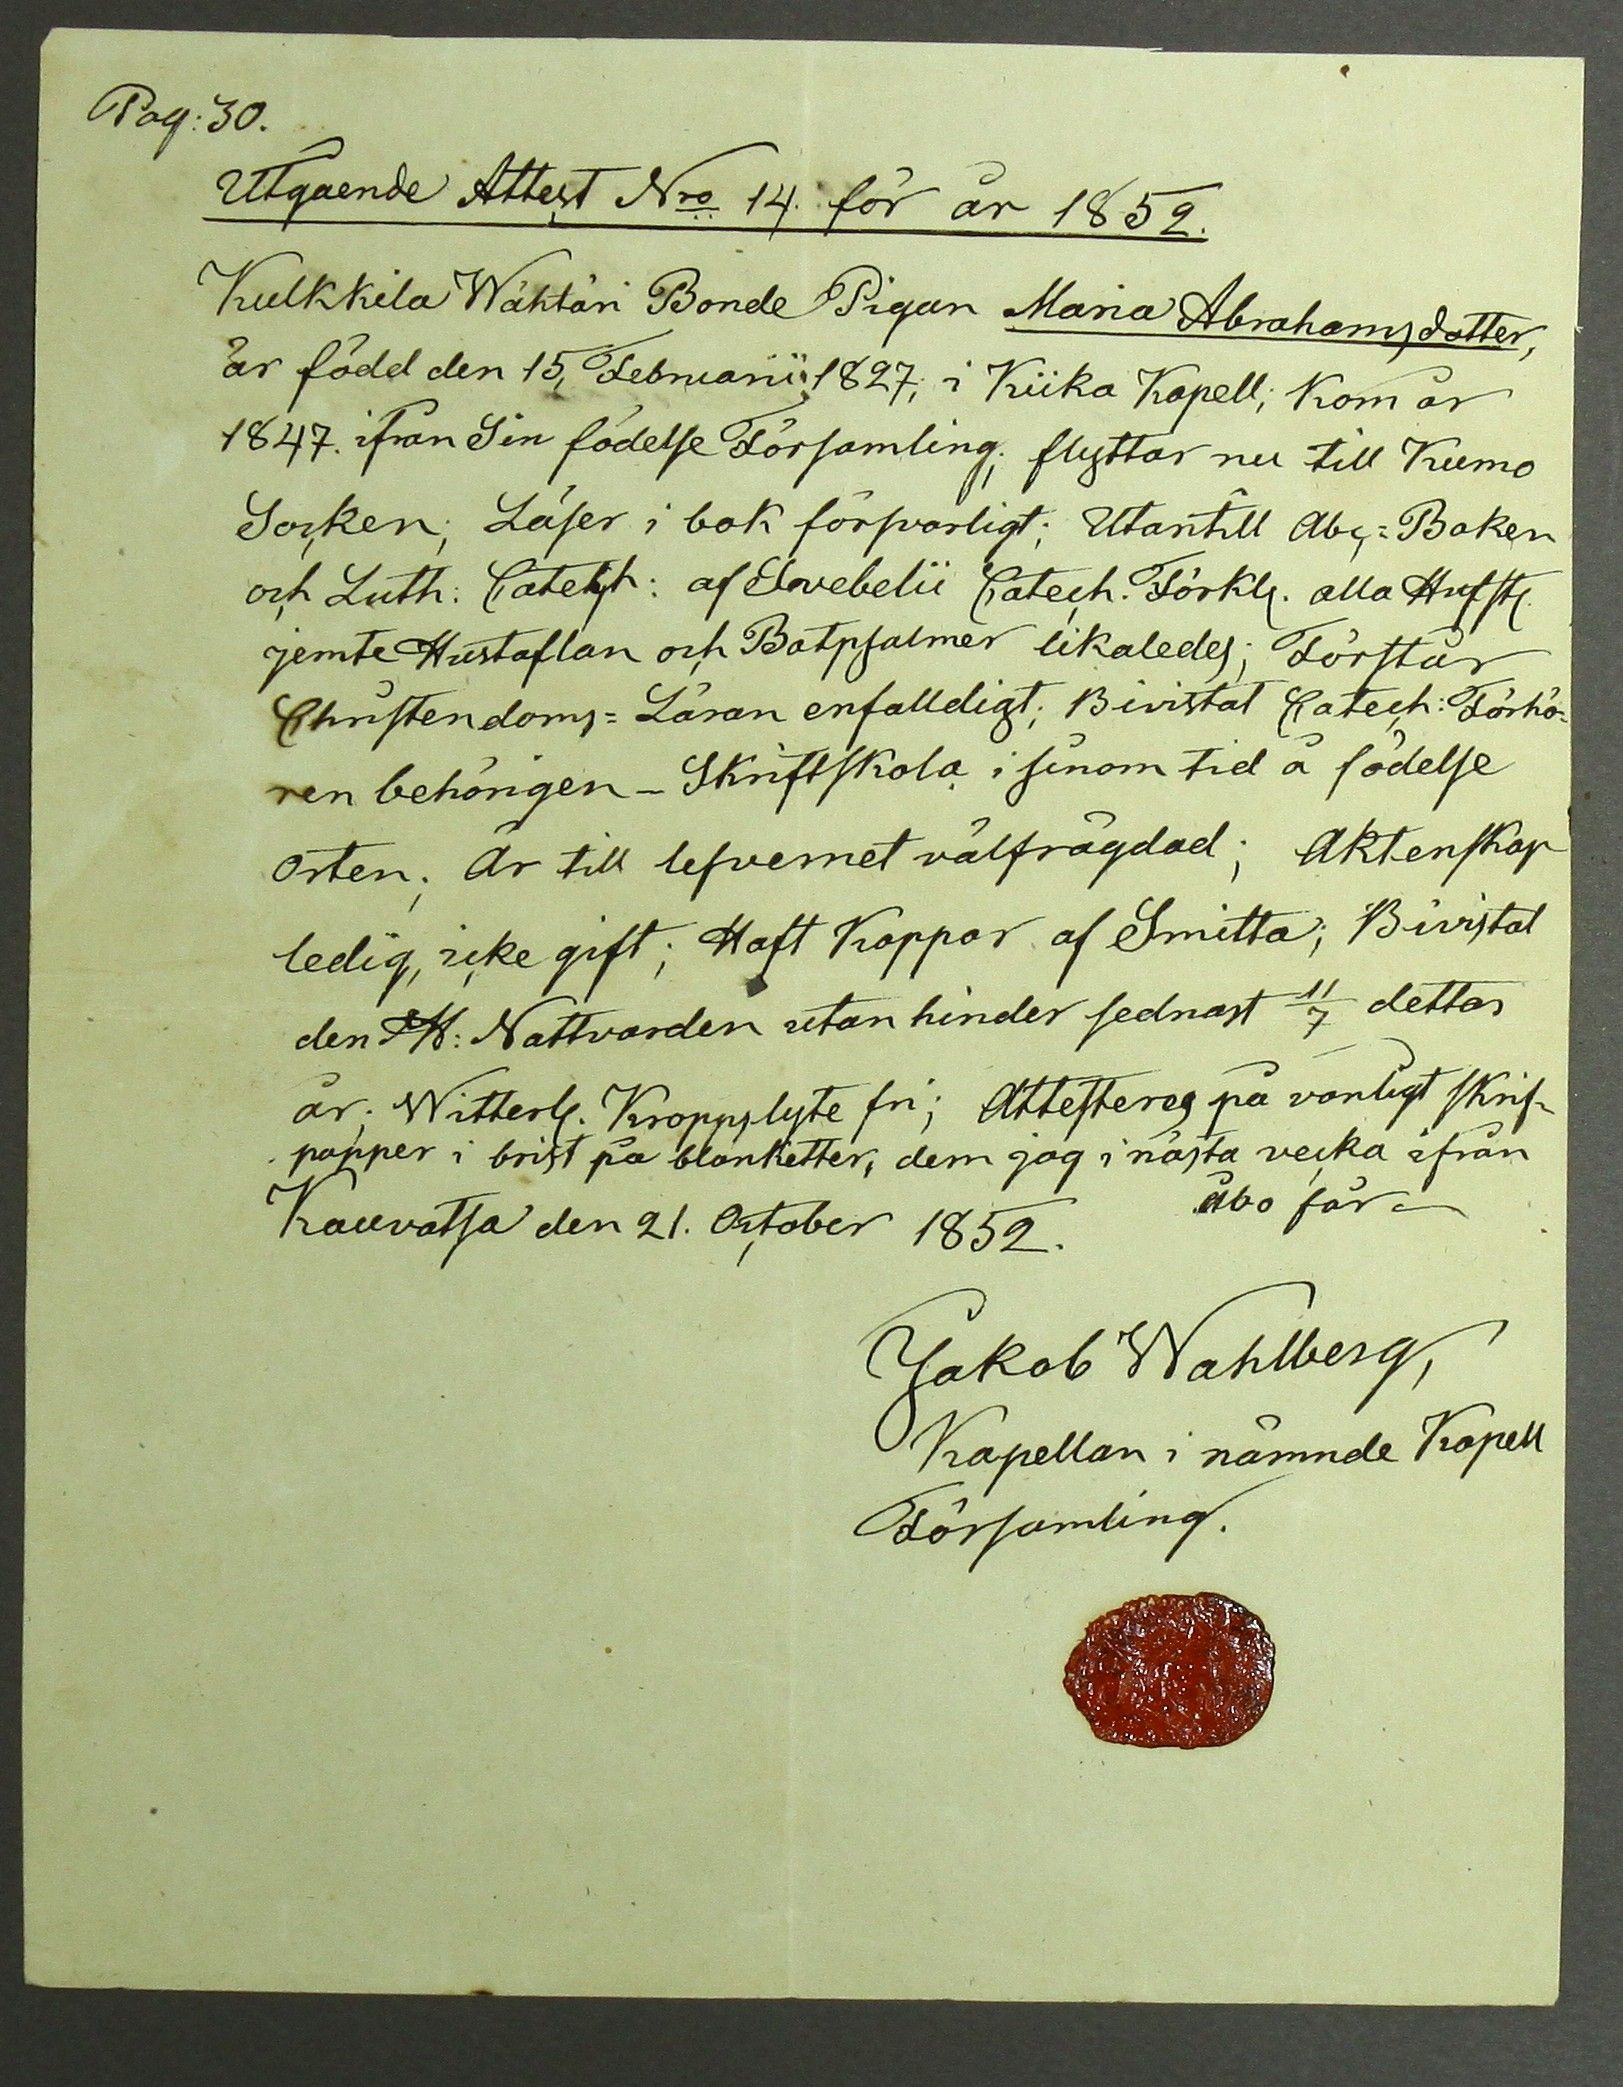 Pag: 30.
Utgaende Attest Nro 14. för år 1852.
Kulkkila Wähtäri Bonde Pigan Maria Abrahamsdotter,
är född den 15, Februarii 1827; i Kiika Kapell; kom år
1847. ifrån Sin födelse Församling; flyttar nu till Kumo
Socken; Läser i bok försvarligt; Utantill Abc=Boken
och Luth: Catech: af Svebelii Catech. Förkl. alla Hufst.
jemte Hustaflan och Botpsalmer likaledes; Förstår
Christendoms=Läran enfalldigt; Bivistat Catech: Förhö=
ren behörigen - Skriftskola i sinom tid å födelse
orten; Är till lefvernet välfrägdad; Äktenskap
ledig, icke gift; Haft Koppor af Smitta; Bivistat
den H: Nattvarden utan hinder sednast 11/7 dettas
år; Witterl. Kroppslyte fri; Attesteras på vanligt skrif-
papper i brist på blanketter, dem jag i nästa vecka ifrån
Kauvatsa den 21. October 1852. Åbo får
Jakob Wahlberg,
Kapellan i nämnde Kapell
Församling.